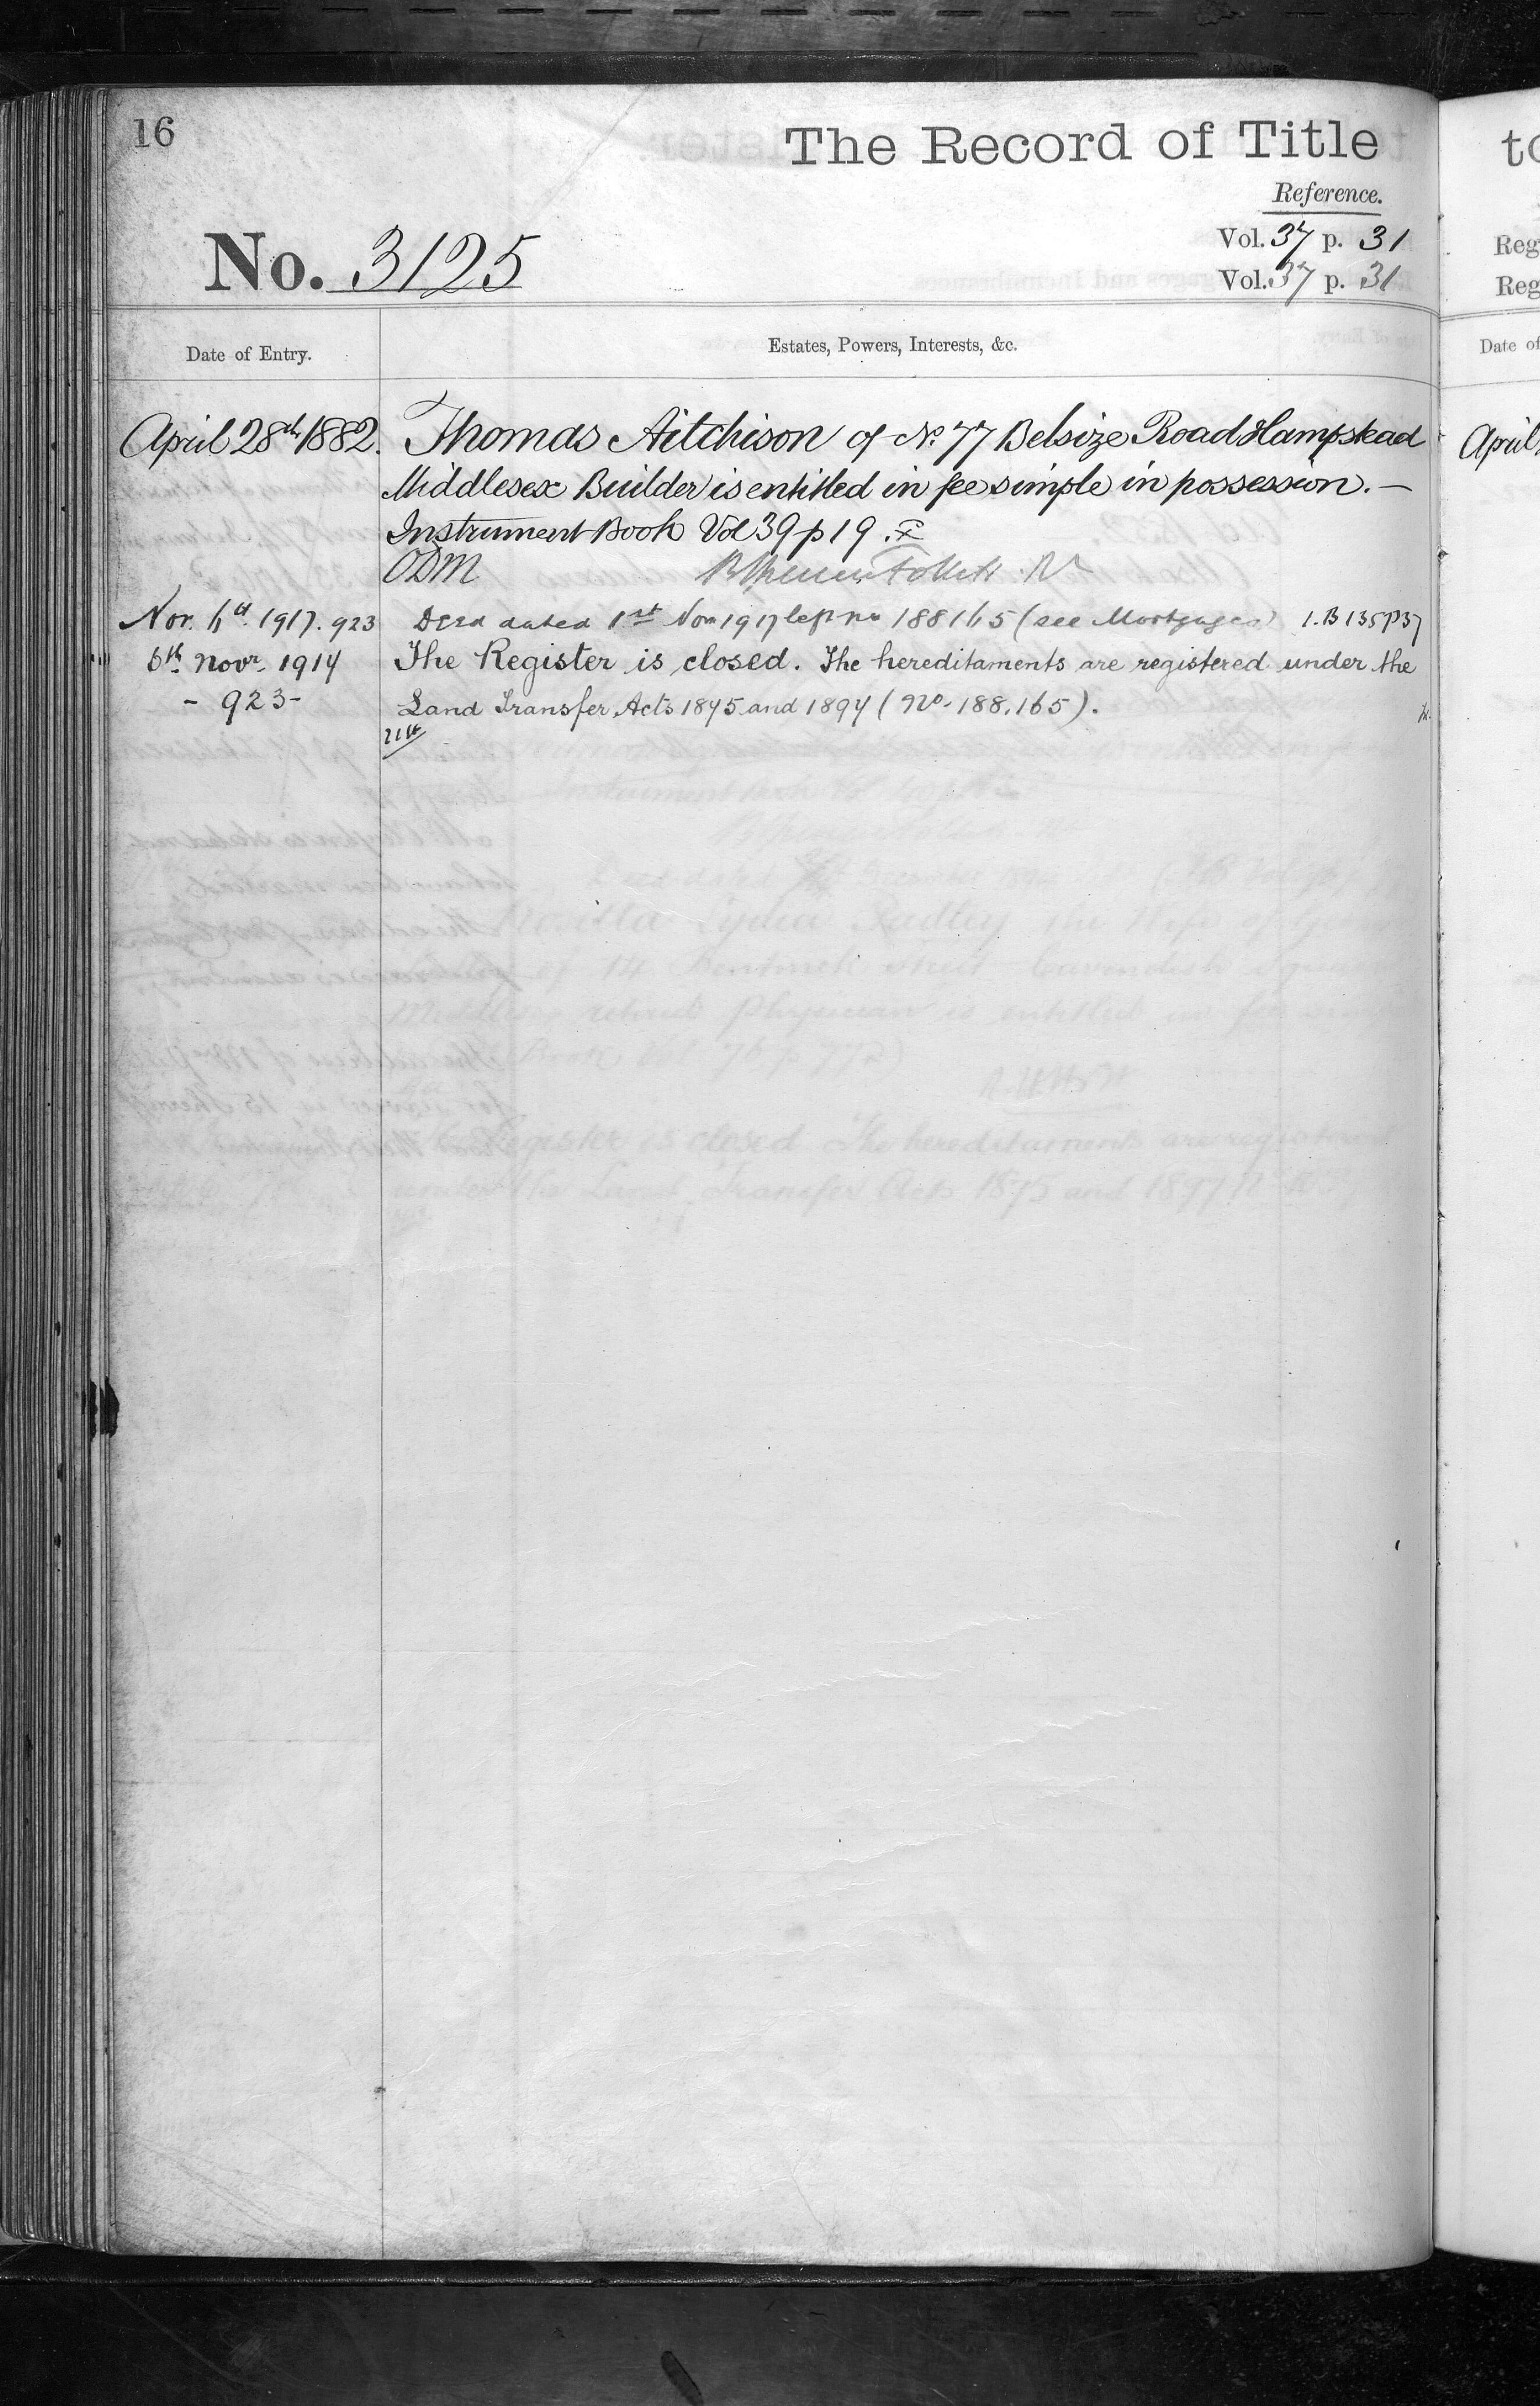 16
The Record of Title
Reference.
Vol. 37 p. 31
No. 3125
Vol. 37 p. 31
Date of Entry.
Estates, Powers, Interests, &c.
April 28th 1882. Thomas Aitchison of No. 77 Belsize Road Hampstead
Middlesex Builder is entitled in fee simple in possession. —
Instrument Book Vol 39 p 19.
ODM
Nov. 6th 1917. 923 Deed dated 1st Nov 1917 left no 188165 (see Mortgages) I.B 135 P 37
6th Novr. 1917 The Register is closed. The hereditaments are registered under the
- 923 - Land Transfer Acts 1875 and 1897 (No. 188.165).
to
Reg
Reg
Date of
April